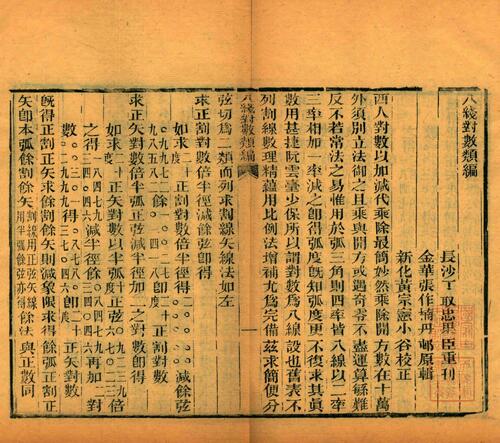 八綫對數類編
長沙丁取忠果臣重刊
金華張作楠丹邨原輯
新化黃宗憲小谷校正
西人對數以加減代乘除最簡妙然乘除開方數在十萬
外須別立法御之且乘與開方或遇奇零不盡運算極難
反不若常法之易惟用於弧三角則四率皆八線以二率
三率相加一率減之卽得弧度旣知弧度更不復求其眞
數用甚捷阮雲臺少保所以謂對數爲八線設也舊表不
列割線數理精蘊用比例法增補尤爲完備茲求簡便分
八綫對數類編
一
弦切爲二類而列求割線矢線法如左
求正割對數倍半徑減餘弦卽得
如求二十度正割對數倍半徑減餘弦
餘卽二十度
求正矢對數倍半弧正弦減半徑加二之對數卽得
如求二十度正矢對數以半弧十度正弦倍
之得減半徑餘再加二對
數得卽二十度正矢對數
旣得正割正矢對數求餘割餘矢則減象限求得弧正割正
矢卽本弧餘割餘矢割線用正弦矢線用半弧餘弦亦得餘法與正數同